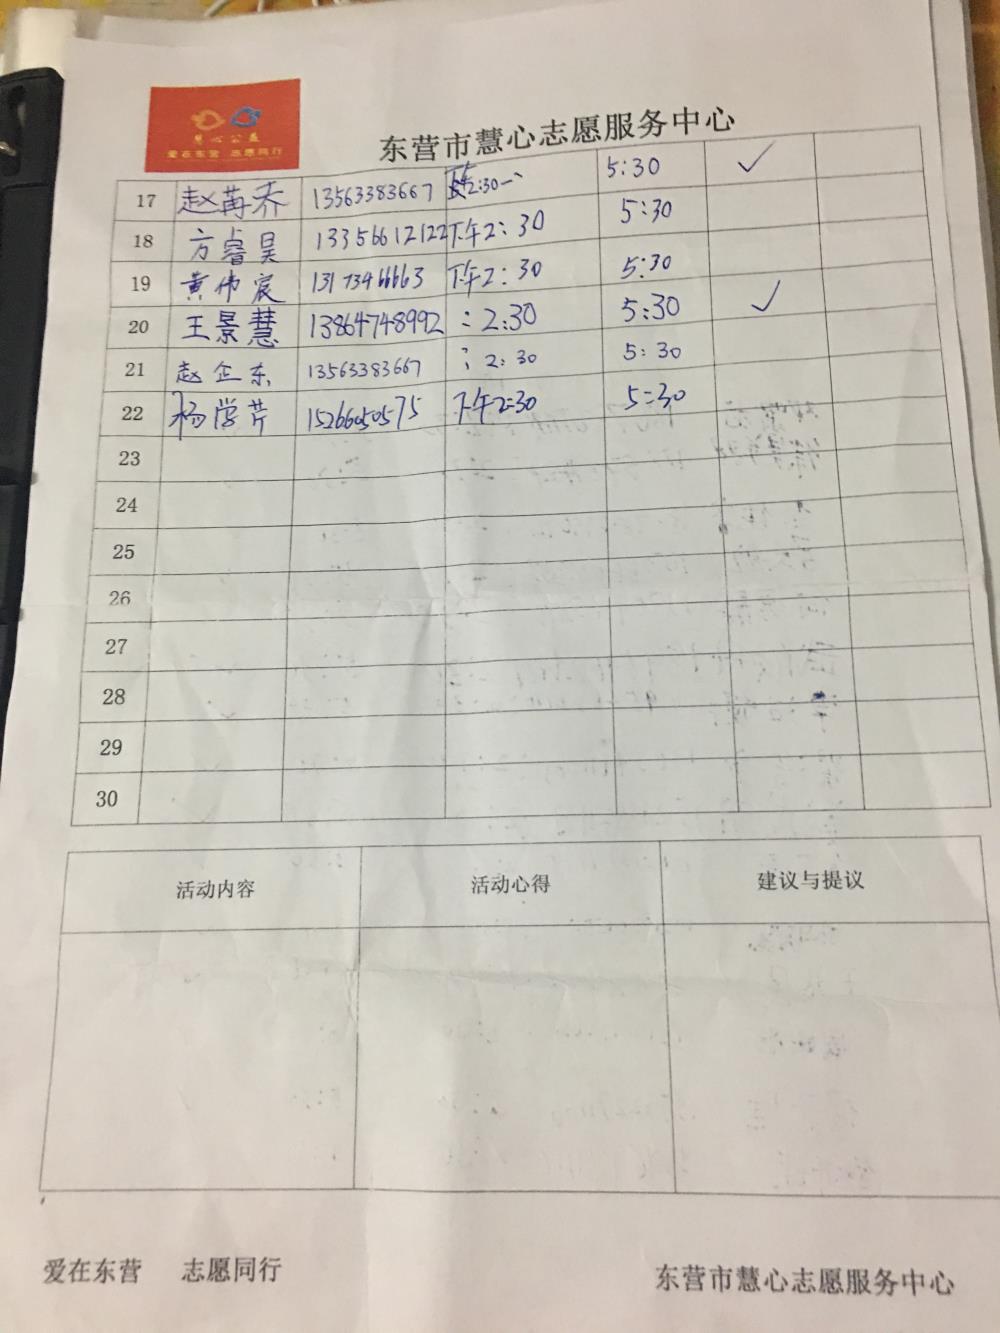 慧心公益
爱在东营 志愿同行
东营市慧心志愿服务中心
17 赵苒乔 13563383667 下午2:30 5:30 ✓
18 方睿昊 13356612122 下午2:30 5:30
19 黄伟宸 下午2:30 5:30
20 王景慧 13864748992 : 2:30 5:30 ✓
21 赵企东 13563383667 : 2:30 5:30
22 杨学芹 15266050575 下午2:30 5:30
23
24
25
26
27
28
29
30
活动内容 活动心得 建议与提议
爱在东营 志愿同行 东营市慧心志愿服务中心